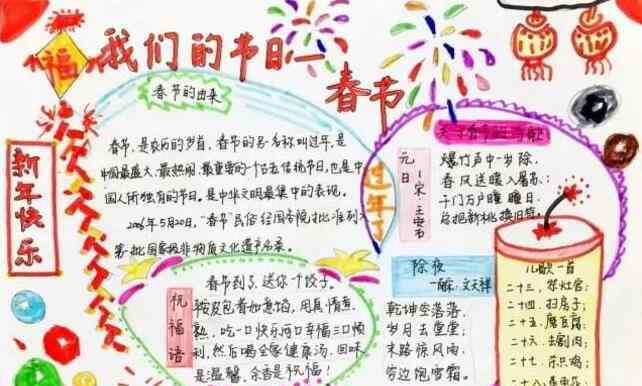 福
我们的节日—
春节
新年快乐
春节的由来
春节，是农历的岁首，春节的另一名称叫过年，是
中国最盛大、最热闹、最重要的一个古老传统节日，也是中
国人所独有的节日。是中华文明最集中的表现。
2006年5月20日，“春节”民俗经国务院批准列入
第一批国家级非物质文化遗产名录。
过年了
元日
宋·王安石
爆竹声中一岁除，
春风送暖入屠苏；
千门万户曈曈日，
总把新桃换旧符。
祝福语
春节到了，送你一个饺子。
熟，吃一口快乐两口幸福三口顺
利，然后喝全家健康汤，回味
是温馨，余香是祝福！
除夜
文天祥
乾坤空落落，
岁月去堂堂；
末路惊风雨，
穷边饱雪霜。
儿歌一首
二十三，祭灶官；
二十四，扫房子；
二十五，磨豆腐；
二十六，去割肉；
二十七，杀只鸡；